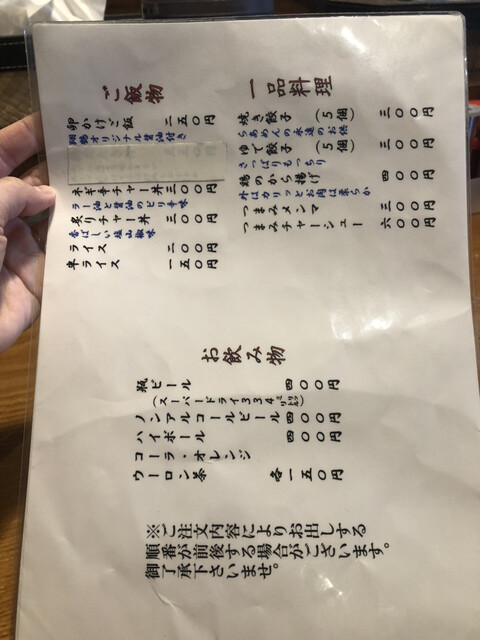 一品料理
焼き餃子 (５個) 三〇〇円
らあめんの永遠のお供
ゆで餃子 (５個) 三〇〇円
さっぱりもっちり
鶏のから揚げ 四〇〇円
外はカリッとお肉は柔らか
つまみメンマ 三〇〇円
つまみチャーシュー 六〇〇円
ご飯物
卵かけご飯 二五〇円
翔鶴オリジナル醤油付き
ネギ辛チャー丼 三〇〇円
ラー油と醤油のピリ辛味
炙りチャー丼 三〇〇円
香ばしい塩山椒味
ライス 二〇〇円
半ライス 一五〇円
お飲み物
瓶ビール 四〇〇円
(スーパードライ３３４㍉㍑)
ノンアルコールビール 四〇〇円
ハイボール 四〇〇円
コーラ・オレンジ
ウーロン茶 各一五〇円
※ご注文内容によりお出しする
順番が前後する場合がございます。
御了承下さいませ。